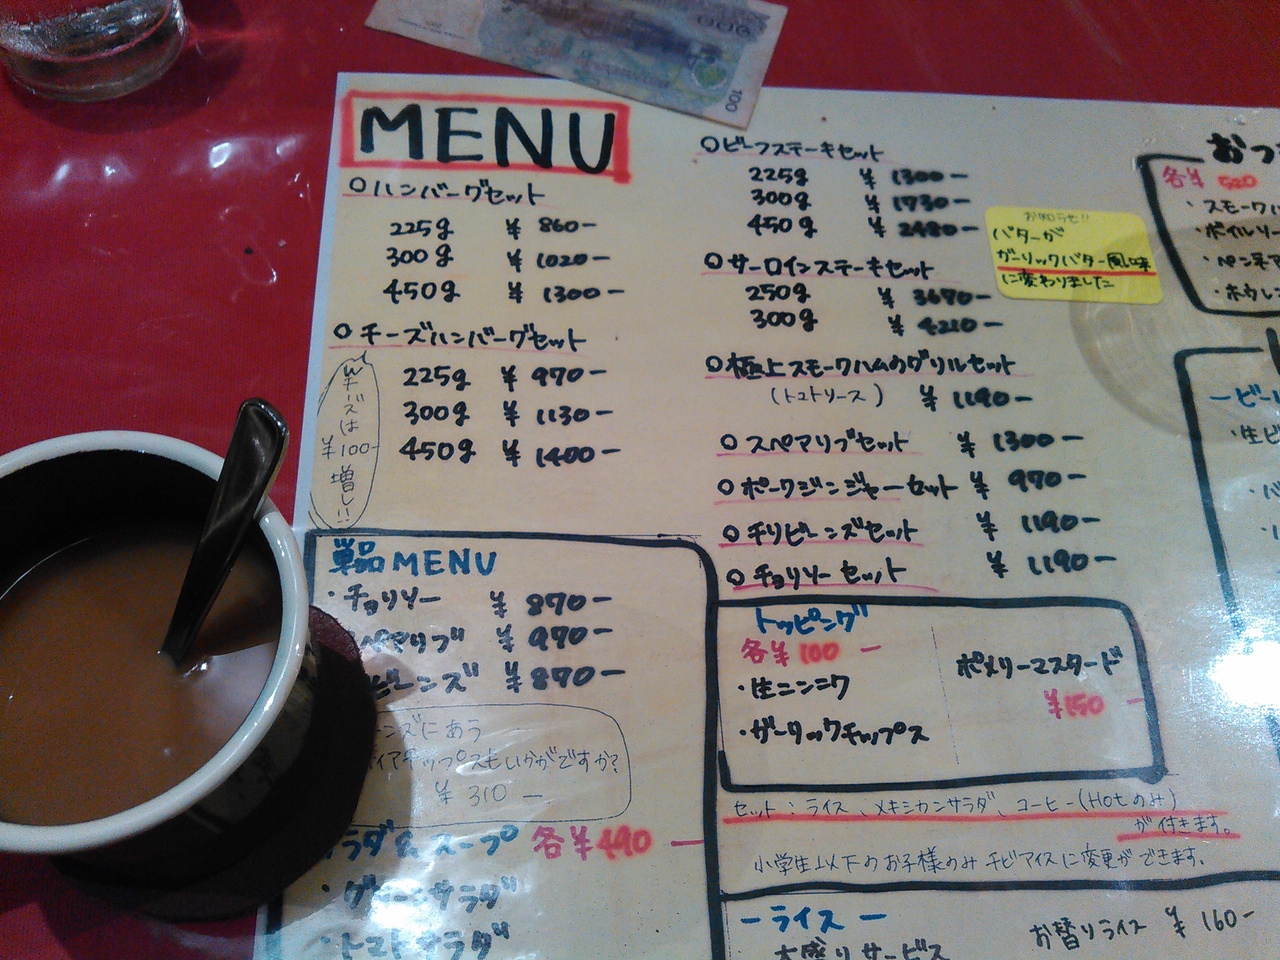 100
MENU
○ハンバーグセット
225g ¥ 860-
300g ¥ 1020-
450g ¥ 1300-
○チーズハンバーグセット
225g ¥ 970-
300g ¥ 1130-
450g ¥ 1400-
Wチーズは
¥100-
増し!!
○ビーフステーキセット
225g ¥ 1300-
300g ¥ 1730-
450g ¥ 2480-
○サーロインステーキセット
250g ¥ 3670-
300g ¥ 4210-
○極上スモークハムのグリルセット
(トマトソース) ¥ 1190-
○スペアリブセット ¥ 1300-
○ポークジンジャーセット ¥ 970-
○チリビーンズセット ¥ 1190-
○チョリソーセット ¥ 1190-
お知らせ!!
バターが
ガーリックバター風味
に変わりました
おつ
各¥520
・スモークハ
・ボイルソー
・ペンネア
・ホウレン
-ビール
・生ビ
単品MENU
・チョリソー ¥ 870-
ペアリブ ¥ 970-
ビーンズ ¥ 870-
ーンズにあう
ィアチップスもいかがですか?
¥ 310-
ラダ&スープ 各¥490-
・グリーンサラダ
・トマトサラダ
トッピング
各¥100-
・生ニンニク
・ガーリックチップス
ポメリーマスタード
¥150-
セット:ライス、メキシカンサラダ、コーヒー(Hotのみ)
が付きます。
小学生以下のお子様のみチビアイスに変更ができます。
-ライス-
大盛りサービス
お替りライス ¥ 160-